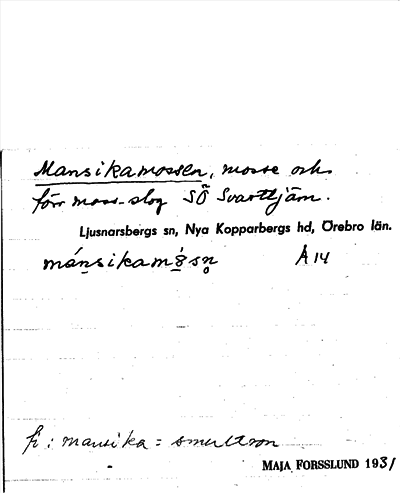 Mansikamossen, mosse och
förr moss-slog SÖ Svarttjärn.
Ljusnarsbergs sn, Nya Kopparbergs hd, Örebro län.
mánsikam8̀sn̥ A 14
fi: mansika = smultron
MAJA FORSSLUND 1931